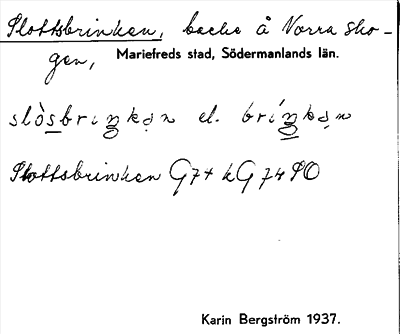 Slottsbrinken, backe å Norra sko-
gen, Mariefreds stad, Södermanlands län.
slòsbriŋkən el. bríŋkən
Slottsbrinken G74 kG74 SO
Karin Bergström 1937.